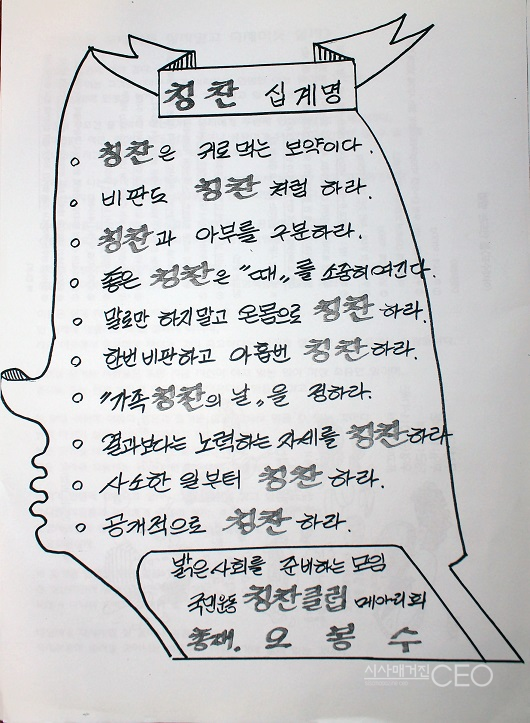 칭찬 십계명
칭찬은 귀로먹는 보약이다.
비판도 칭찬처럼 하라.
칭찬과 아부를 구분하라.
좋은 칭찬은 "때"를 소중히여긴다.
말로만 하지말고 온몸으로 칭찬하라.
한번비판하고 아홉번 칭찬하라.
"가족칭찬의 날"을 정하라.
결과보다는 노력하는 자세를 칭찬하라
사소한 일부터 칭찬하라.
공개적으로 칭찬하라.
밝은사회를 준비하는모임
국민운동 칭찬클럽 메아리회
총재. 오봉수
시사매거진CEO